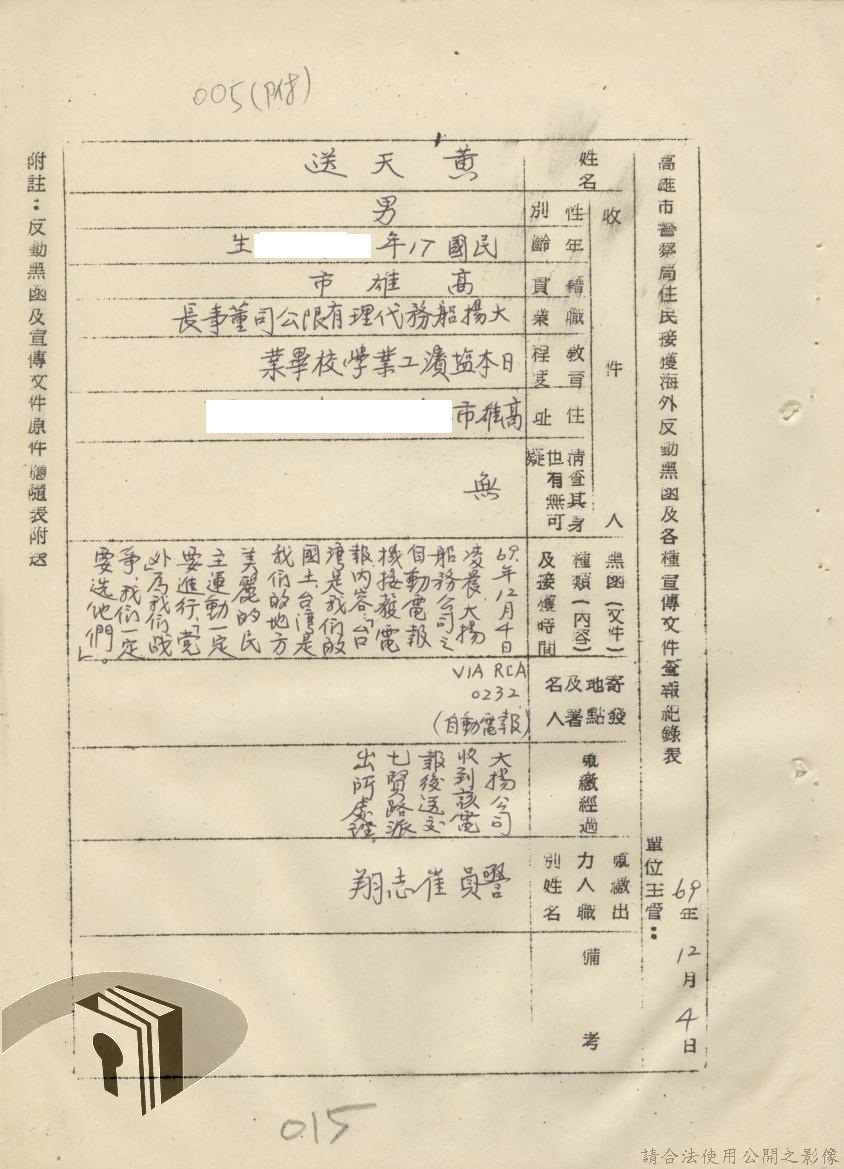 005(附)
高雄市警察局住民接獲海外反動黑函及各種宣傳文件查報紀錄表
單位主管：
69年12月4日
收件人
姓名
黃天送
性別
男
年齡
民國17年
生
籍貫
高雄市
職業
大揚船務代理有限公司董事長
教育程度
日本塩濱工業學校畢業
住址
高雄市
清查其身也有無可疑
無
黑函(文件)種類(內容)及接獲時間
69.年12月4日
凌晨.大揚
船務公司之
自動電報
機接獲電
報,內容「台
灣是我們的
國土,台灣是
我們的地方
美麗的民
主運動一定
要進行,「党
外」為我們戰
爭,我們一定
要選他們
」。
寄發地點及署名人
VIA RCA
0232
(自動電報)
繳經過
大揚公司
收到該電
報後送交
七賢路派
出所處理。
繳出力人職別姓名
警員崔志翔
備考
附註：反動黑函及宣傳文件原件隨表附送
015
請合法使用公開之影像